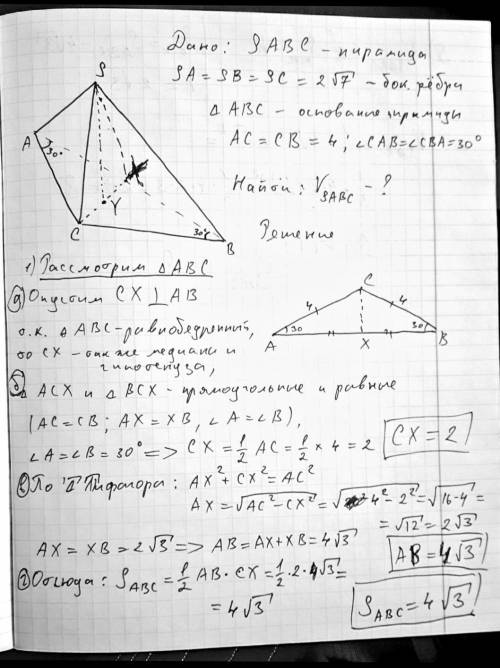 Дано: SABC - пирамида
SA = SB = SC = 2√7 - бок. рёбра
△ ABC - основание пирамиды
AC = CB = 4; ∠CAB = ∠CBA = 30°
Найти: V_SABC - ?
Решение
S
A
30°
Y
C
30°
B
1) Рассмотрим △ ABC
а) Опустим CX ⊥ AB
т.к. △ ABC - равнобедренный,
то CX - так же медиана и
гипотенуза,
C
4
4
A
30
X
30
B
б) △ ACX и △ BCX - прямоугольные и равные
(AC = CB; AX = XB, ∠A = ∠B),
∠A = ∠B = 30° => CX = 1/2 AC = 1/2 × 4 = 2
CX = 2
в) По Т Пифагора: AX² + CX² = AC²
AX = √(AC² - CX²) = √(4² - 2²) = √(16-4) =
= √12 = 2√3
AX = XB = 2√3 => AB = AX + XB = 4√3
AB = 4√3
г) Отсюда: S_ABC = 1/2 AB · CX = 1/2 · 2 · 4√3 =
= 4√3
S_ABC = 4√3